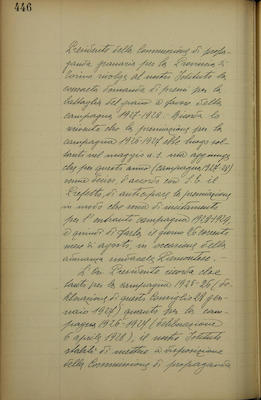 446
Presidente della Commissione di propa-
ganda granaria per la Provincia di
Torino rivolge al nostro Istituto la
consueta domanda di premi per la
battaglia del grano a favore della
campagna 1927-1928. Ricorda lo
scrivente che la premiazione per la
campagna 1926-1927 ebbe luogo sol-
tanto nel maggio u. s. ma aggiunge
che per quest'anno (campagna 1927-28)
venne deciso d'accordo con S. E. il
Prefetto, di anticipare la premiazione
in modo che serva di incitamento
per l'entrante campagna 1928-1929
e quindi di farla, il giorno 26 corrente
mese di agosto, in occasione della
adunanza Piemontese.
L'On. Presidente ricorda che
tanto per la campagna 1925-26 (de-
liberazione di questo Consiglio 28 gen-
naio 1927) quanto per la cam-
pagna 1926-1927 (deliberazione
6 aprile 1928), il nostro Istituto
stabilì di mettere a disposizione
della Commissione di propaganda